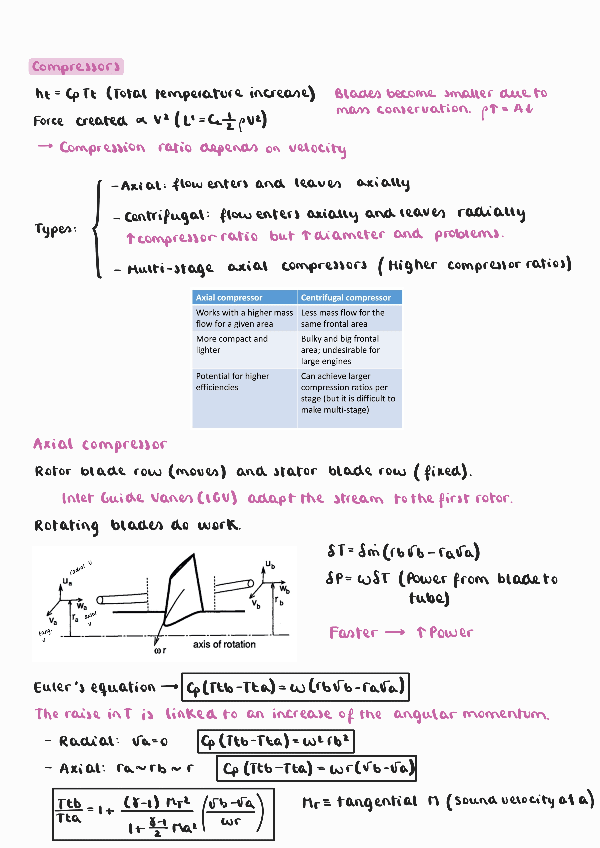 Compressors
ht = CpTt (Total temperature increase)
Blades become smaller due to
mass conservation. ρ↑ = A↓
Force created ∝ V² (L' = CL ½ ρV²)
→ Compression ratio depends on velocity
Types:
- Axial: flow enters and leaves axially
- Centrifugal: flow enters axially and leaves radially
↑ compressor ratio but ↑ diameter and problems.
- Multi-stage axial compressors (Higher compressor ratios)
Axial compressor Centrifugal compressor
Works with a higher mass flow for a given area
Less mass flow for the same frontal area
More compact and lighter
Bulky and big frontal area; undesirable for large engines
Potential for higher efficiencies
Can achieve larger compression ratios per stage (but it is difficult to make multi-stage)
Axial compressor
Rotor blade row (moves) and stator blade row (fixed).
Inlet Guide Vanes (IGV) adapt the stream to the first rotor.
Rotating blades do work.
radial v
ua
wa
va
ra
axial v
tang. v
ωr
axis of rotation
ub
wb
vb
rb
δT = δṁ(rbvb - rava)
δP = ωδT (Power from blade to
tube)
Faster → ↑ Power
Euler's equation → Cp(Ttb - Tta) = ω(rbvb - rava)
The raise in T is linked to an increase of the angular momentum.
- Radial: va = 0 Cp(Ttb - Tta) = ω²rb²
- Axial: ra ~ rb ~ r Cp(Ttb - Tta) = ωr(vb - va)
Ttb/Tta = 1 + (γ-1)Mr²/(1 + (γ-1)/2 Ma²) ((vb - va)/ωr)
Mr ≡ tangential M (sound velocity at a)